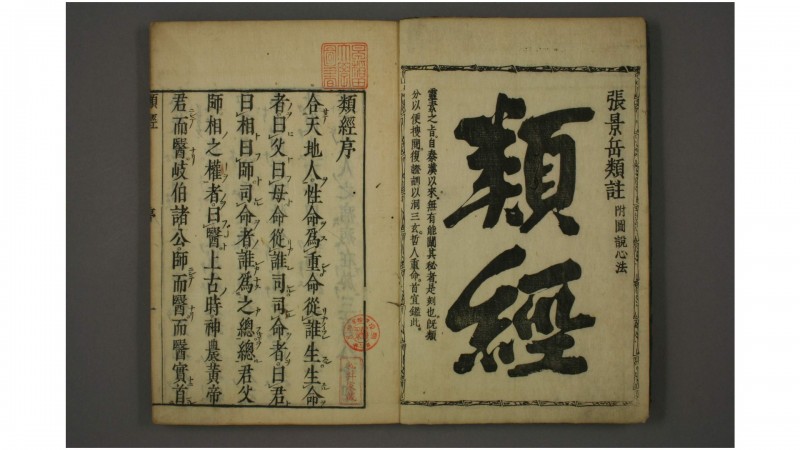 張景岳類註 附圖說心法
類經
靈素之旨。自秦漢以來。無有能闡其秘者。是刻也。旣類
分以便搜閱。復證訓以洞三玄。哲人重命。首宜鑑此。
類經序
合天地人性命爲重命從誰生生命
者曰父曰母命從誰司司命者曰君
曰相曰師司命者誰爲之總總君父
師相之權者曰醫上古時神農黃帝
君而醫岐伯諸公師而醫而醫實首
類經 序 一